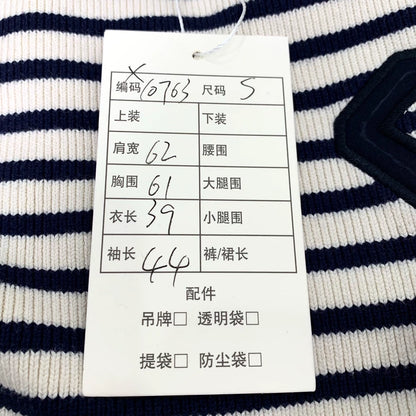 编码 X10763 尺码 S
上装 下装
肩宽 62 腰围
胸围 61 大腿围
衣长 39 小腿围
袖长 44 裤/裙长
配件
吊牌□ 透明袋□
提袋□ 防尘袋□